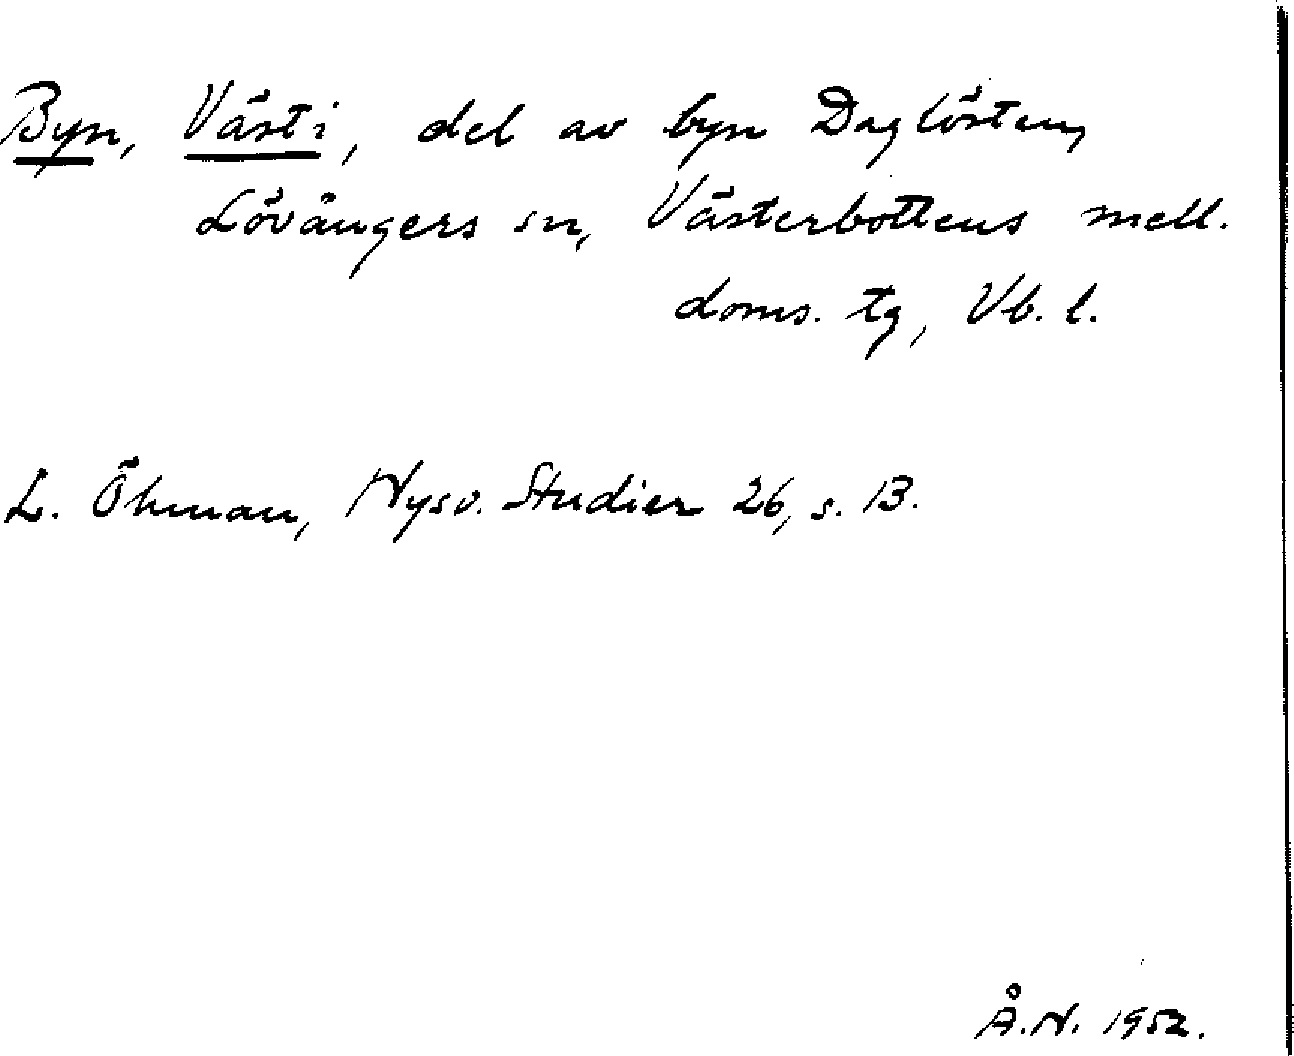 Byn, Västi, del av byn Daglösten,
Lövångers sn, Västerbottens mell.
doms. tg, Vb. l.
L. Öhman, Nysv. Studier 26, s. 13.
Å.N. 1952.